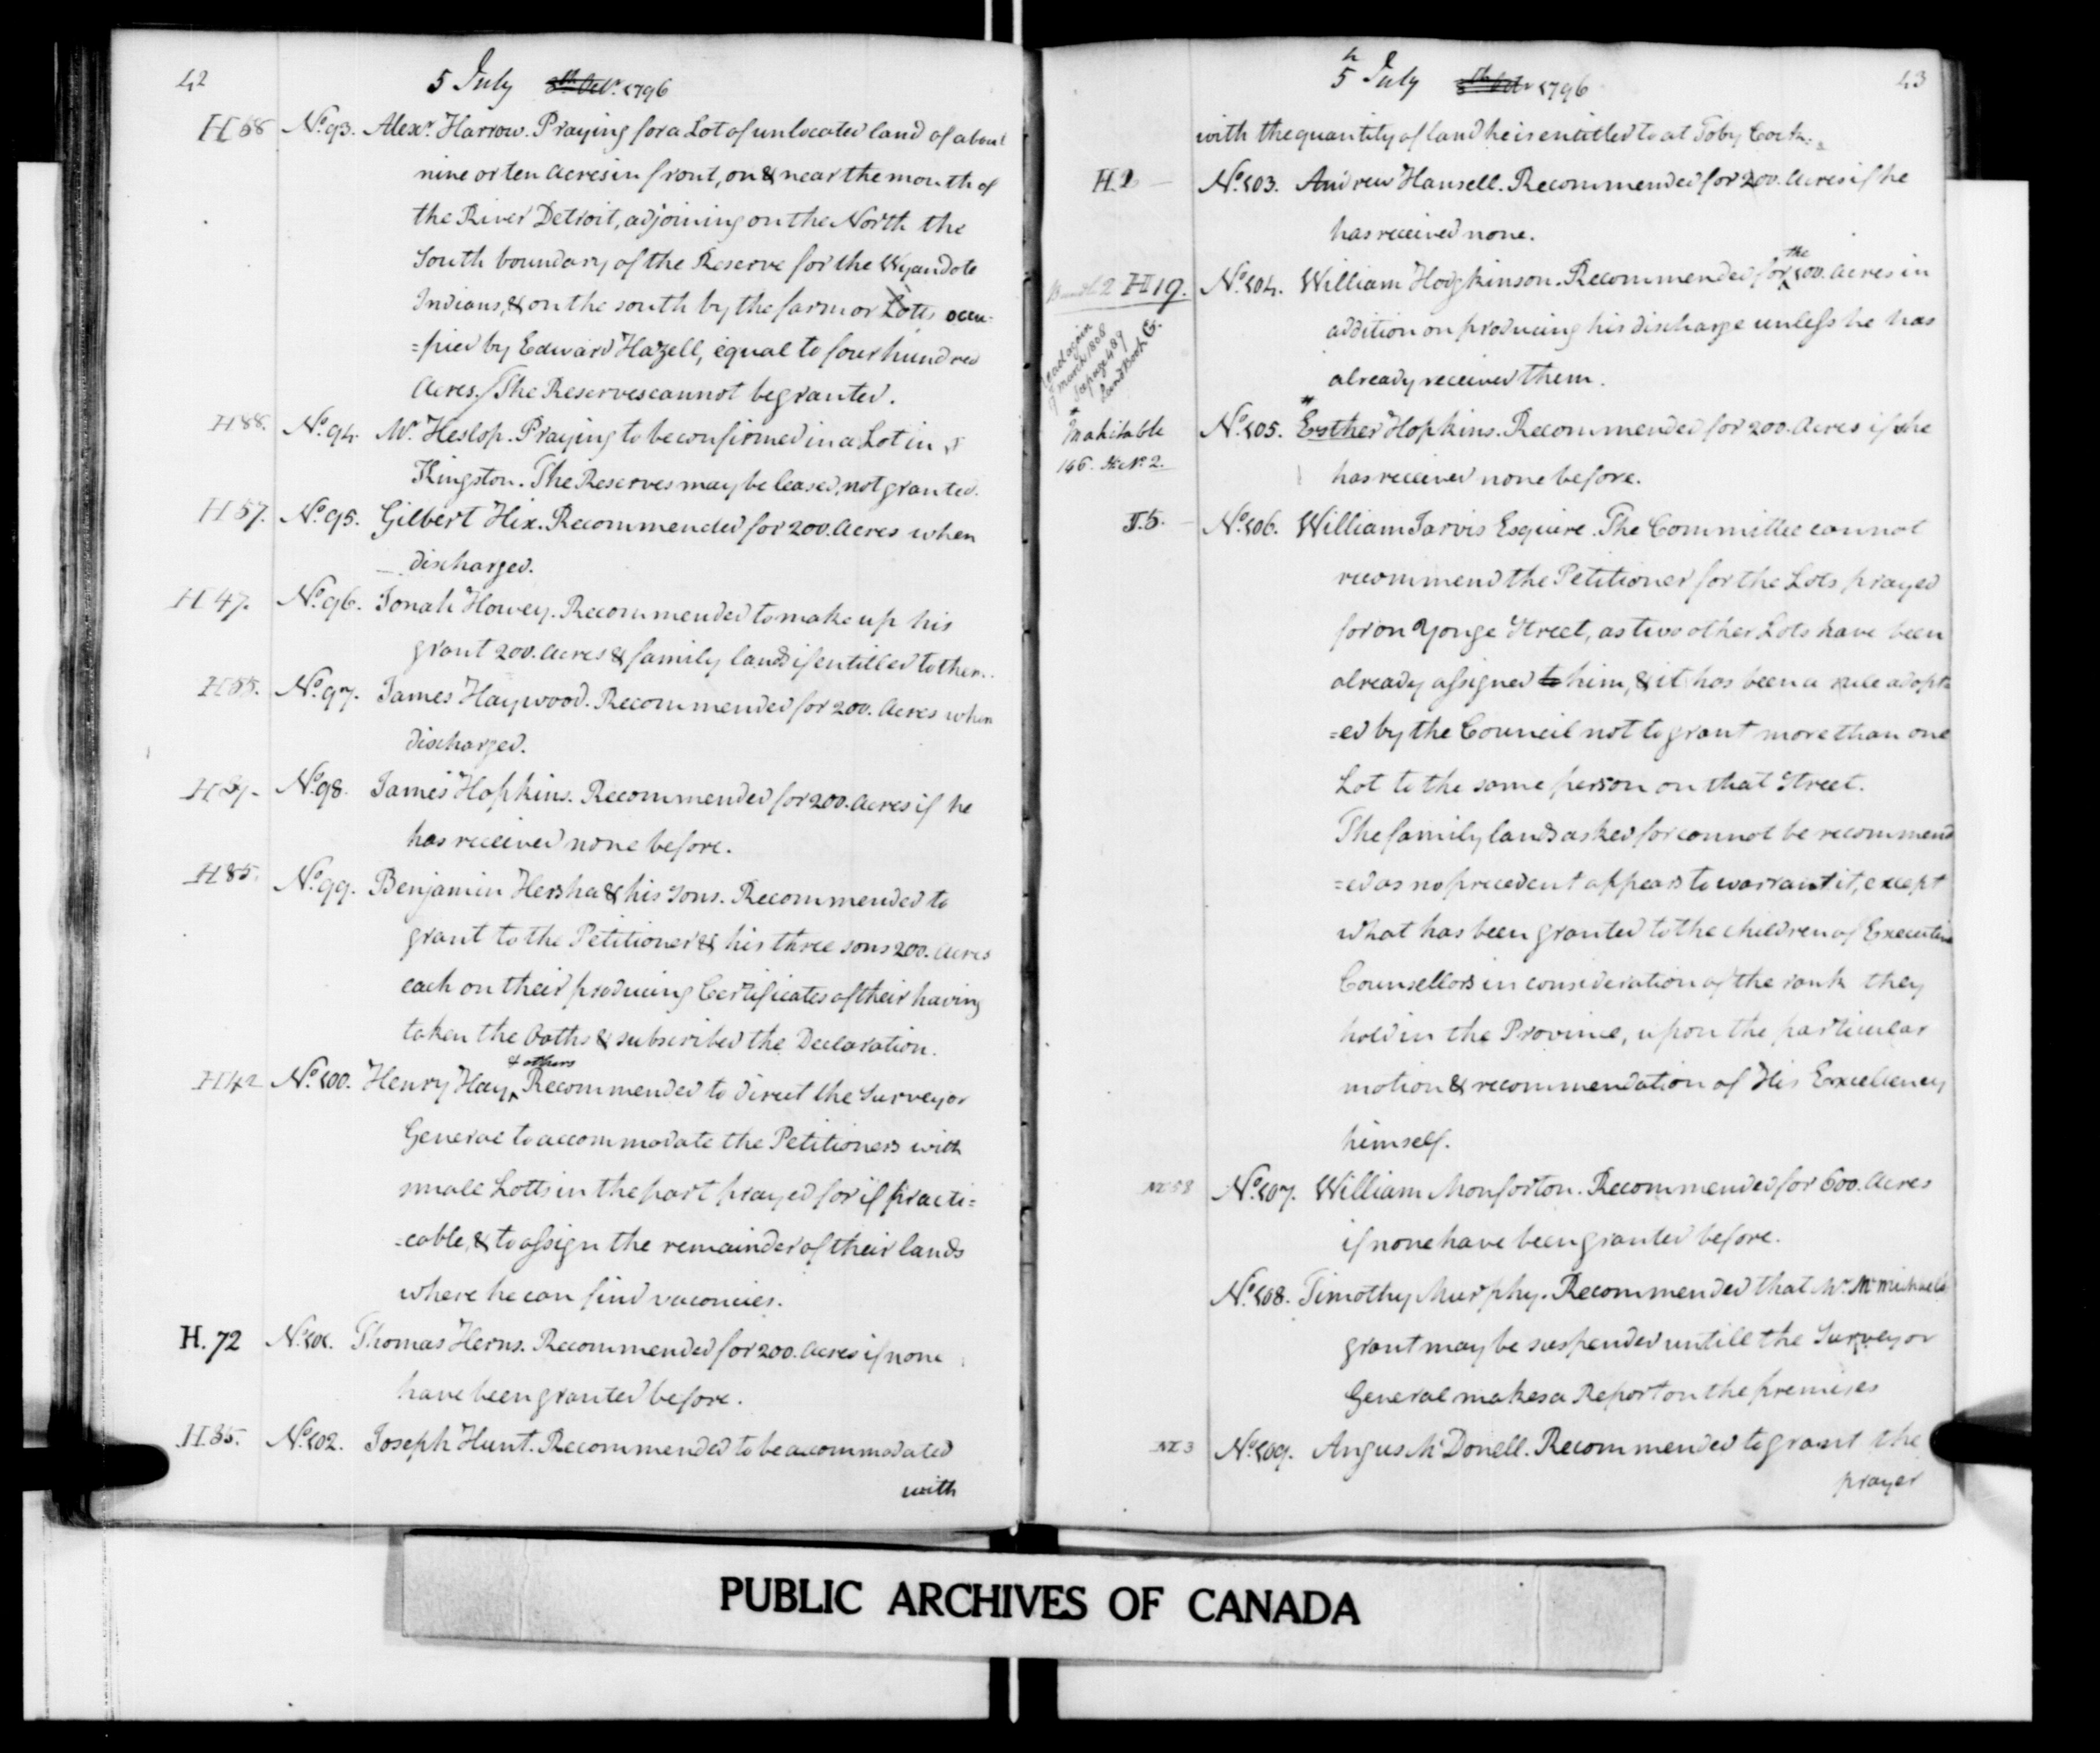 42
5 July 1796
H 68 No. 93. Alexr. Harrow. Praying for a Lot of unlocated land of about
nine or ten Acres in front, on & near the mouth of
the River Detroit, adjoining on the North the
South boundary of the Reserve for the Wyandote
Indians, & on the south by the farm or Lotts occu=
=pied by Edward Hazell, equal to four hundred
Acres./The Reserves cannot be granted.
H 88. No. 94. Mr. Heslop. Praying to be confirmed in a Lot in
Kingston. The Reserves may be leased, not granted.
H 57. No. 95. Gilbert Hix. Recommended for 200. Acres when
discharged.
H 47. No. 96. Jonah Howey. Recommended to make up his
grant 200. Acres & family lands if entitled to them.
H 55. No. 97. James Haywood. Recommended for 200. Acres when
discharged.
No. 98. James Hopkins. Recommended for 200. Acres if he
has received none before.
H 85. No. 99. Benjamin Hershe & his Sons. Recommended to
grant to the Petitioner & his three sons 200. Acres
each on their producing Certificates of their having
taken the Oaths & subscribed the Declaration.
H 42 No. 100. Henry Hay & others Recommended to direct the Surveyor
General to accommodate the Petitioners with
small Lotts in the part prayed for if practi=
=cable, & to assign the remainder of their lands
where he can find vacancies.
H. 72 No. 101. Thomas Herns. Recommended for 200. Acres if none
have been granted before.
H 35. No. 102. Joseph Hunt. Recommended to be accommodated
with
5 July 1796
43
with the quantity of land he is entitled to at Toby Cock.
H. 2 No. 103. Andrew Hansell. Recommended for 200. Acres if he
has received none.
Bundle 2 H 19. No. 104. William Hodgkinson. Recommended for the 100. Acres in
addition on producing his discharge unless he has
already received them.
Read again
march 1808
See page 489
Land Book G.
*
Mahitable No. 105. * Ersther Hopkins. Recommended for 200. Acres if she
146. No. 2.
has received none before.
J. 5. No. 106. William Jarvis Esquire. The Committee cannot
recommend the Petitioner for the Lots prayed
for on Yonge Street, as two other Lots have been
already assigned to him, & it has been a rule adopt=
=ed by the Council not to grant more than one
Lot to the same person on that Street.
The family lands asked for cannot be recommend
=ed as no precedent appears to warrant it, except
what has been granted to the children of Executive
Counsellors in consideration of the rank they
hold in the Province, upon the particular
motion & recommendation of His Excellency
himself.
M 58 No. 107. William Monforton. Recommended for 600. Acres
if none have been granted before.
No. 108. Timothy Murphy. Recommended that Mr. McMichaels
grant may be suspended untill the Surveyor
General makes a Report on the premises
M 3 No. 109. Angus McDonell. Recommended to grant the
prayer
PUBLIC ARCHIVES OF CANADA